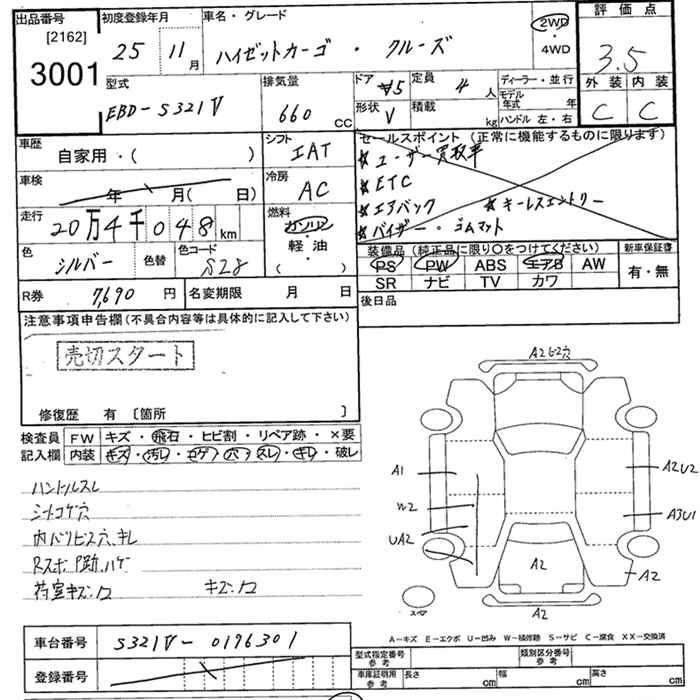 出品番号 初度登録年月 車名・グレード 2WD 評価点
[2162] 25 11月 ハイゼットカーゴ・クルーズ ・4WD 3.5
3001 型式 排気量 ドア 定員 ディーラー・並行 外装 内装
EBD-S321V 660 CC 5 4人 モデル年式 年 C C
形状 V 積載 kg ハンドル 左・右
車歴 自家用・( ) シフト IAT セールスポイント (正常に機能するものに限ります)
★ユーザー買取車
車検 年 月( 日) 冷房 AC ★ETC
★エアバック ★キーレスエントリー
走行 20万4千048km 燃料 ガソリン・軽油 ( ) ★バイザー・ゴムマット
色 シルバー 色替 色コード S28 装備品 (純正品に限り○をつけてください) 新車保証書
PS PW ABS エアB AW 有・無
SR ナビ TV カワ
R券 7690円 名変期限 月 日 後日品
注意事項申告欄 (不具合内容等は具体的に記入して下さい)
売切スタート
修復歴 有 〔箇所 〕
検査員記入欄 FW キズ・飛石・ヒビ割・リペア跡・×要
内装 キズ・汚レ・コゲ・穴・スレ・キレ・破レ
ハンドルスレ
シートコゲ穴
内バリビス穴、キレ
荷室キズ、凹 キズ、凹
A2
A1
A2U2
W2
A3U1
UA2
A2
A2
A2
A-キズ E-エクボ U-凹み W-補修跡 S-サビ C-腐食 XX-交換済
車台番号 S321V-0196301 型式指定番号 参考 類別区分番号 参考
登録番号 車庫証明用 参考 長さ cm 幅 cm 高さ cm